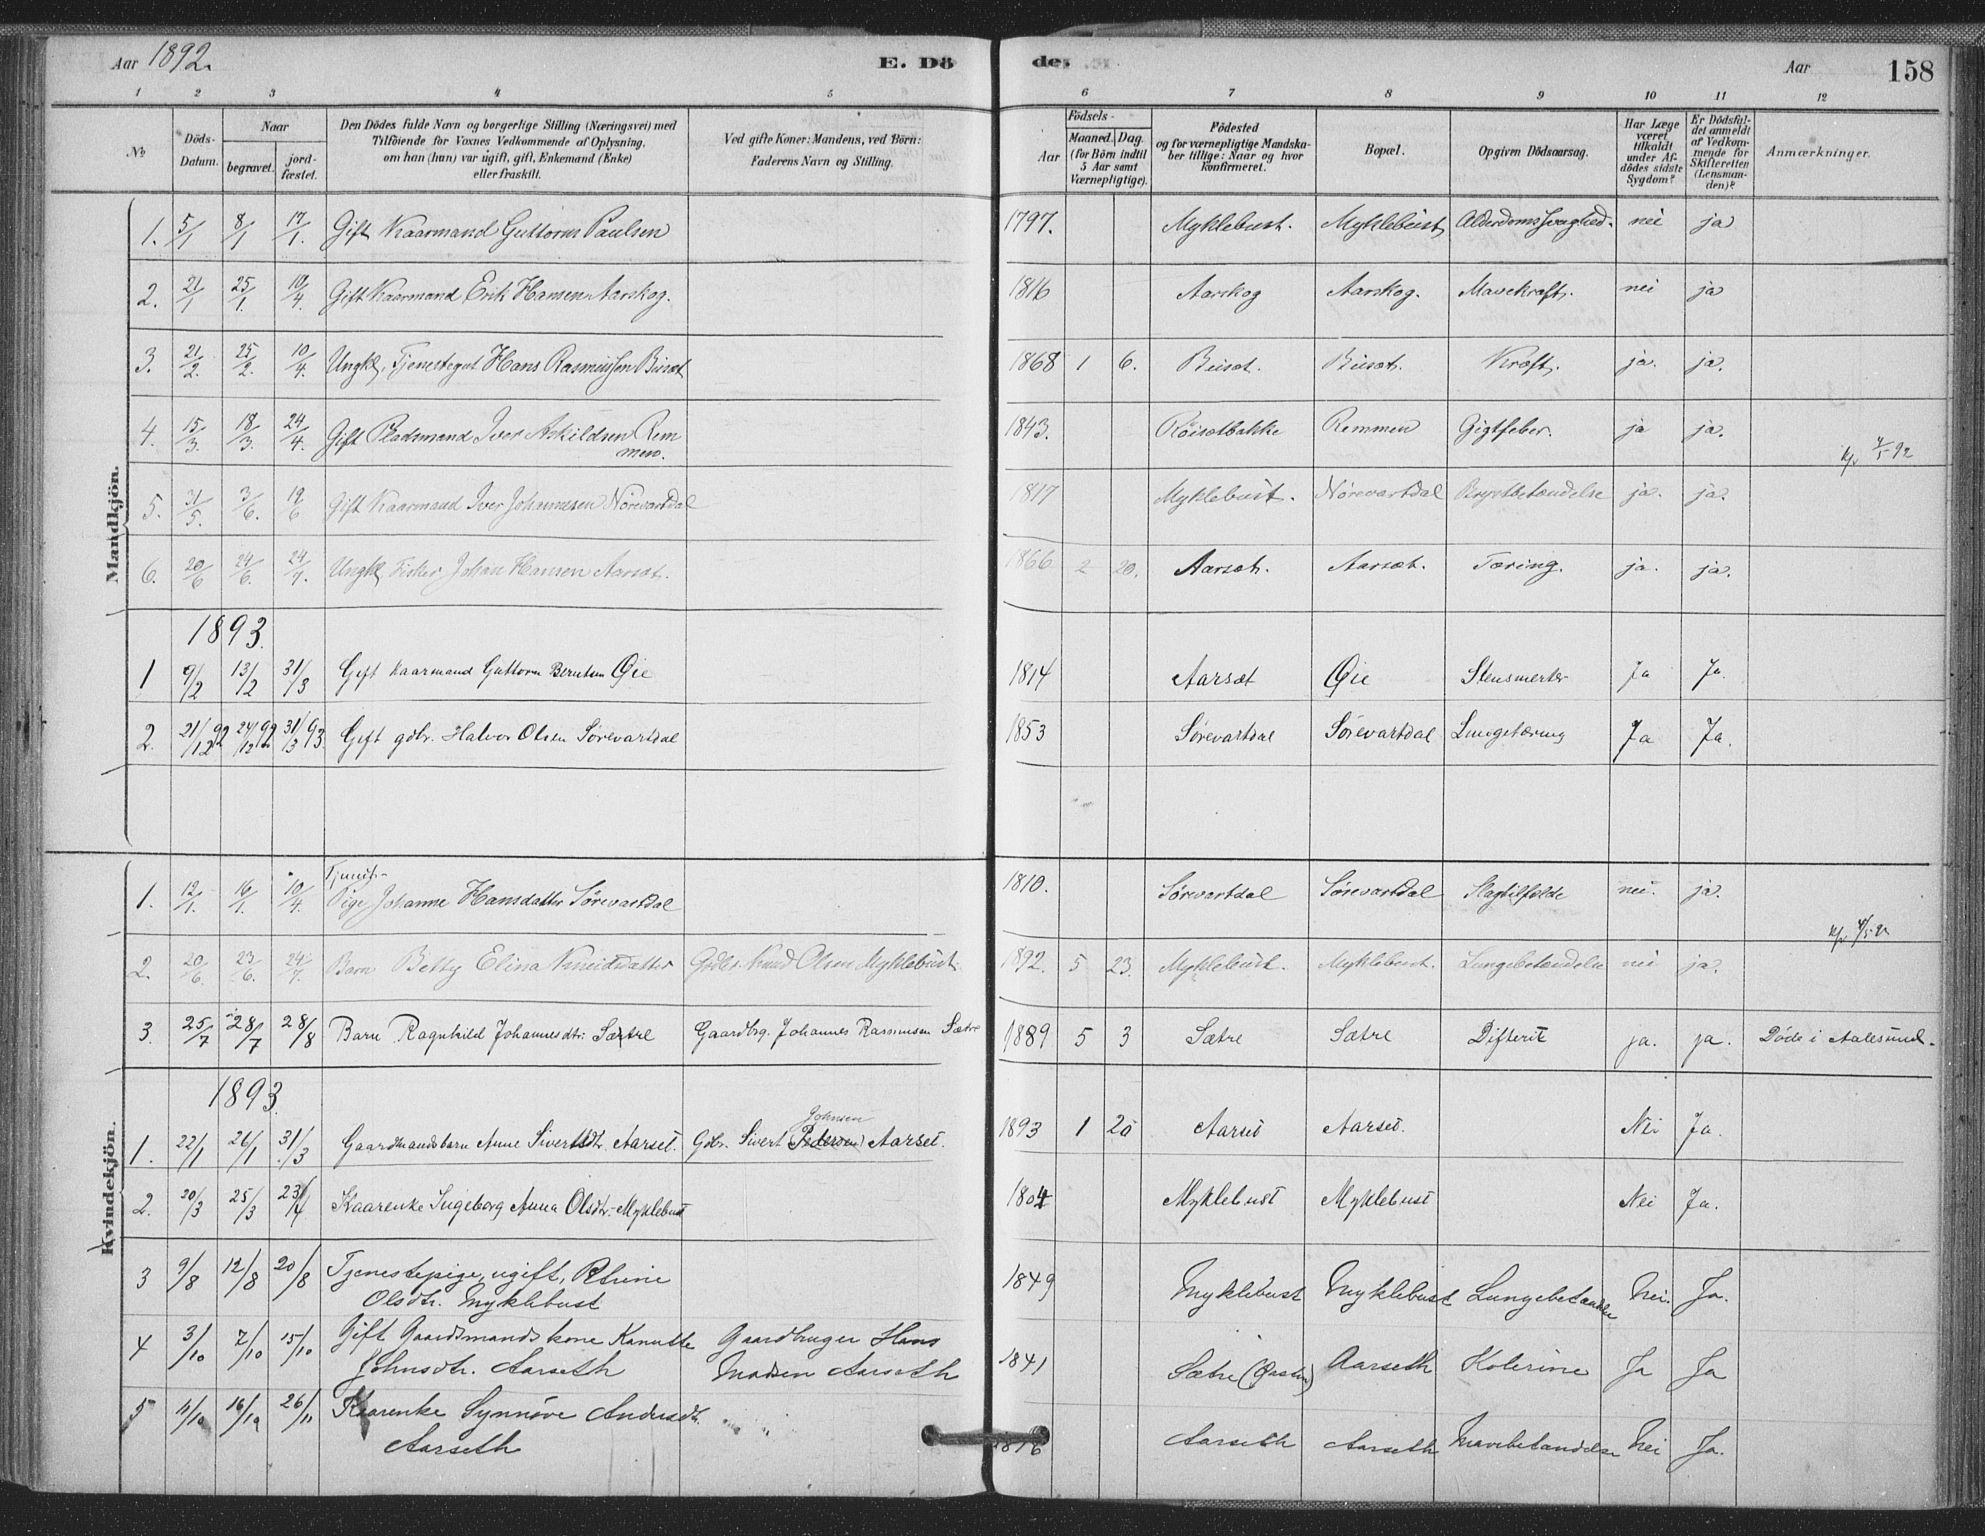 Aar 1892. E. Dö de: Aar 158
1 2 3 4 5 6 7 8 9 10 11 12
No
Döds-Datum.
Naar
begravet.
jord-fæstet.
Den Dödes fulde Navn og borgerlige Stilling (Næringsvei) med
Tilföiende for Voxnes Vedkommende af Oplysning,
om han (hun) var ugift, gift, Enkemand (Enke)
eller fraskilt.
Ved gifte Koner: Mandens, ved Börn:
Faderens Navn og Stilling.
Födsels-
Aar
Maaned. Dag.
(for Börn indtil
5 Aar samt
Værnepligtige).
Födested
og for værnepligtige Mandska-
ber tillige: Naar og hvor
konfirmeret.
Bopæl.
Opgiven Dödsaarsag.
Har Læge
været
tilkaldt
under Af-
dödes sidste
Sygdom?
Er Dödsfal-
det anmeldt
af Vedkom-
mende for
Skifteretten
(Lensman-
den)?
Anmærkninger.
Mandkjön.
1. 5/1 8/1 17/1. Gift Kaarmand Guttorm Paulsen 1797. Myklebust. Myklebust Alderdomssvaghed. nei ja
2. 21/1 25/1. 10/4 Gift Kaarmand Erik Hansen Aarskog. 1816 Aarskog Aarskog. Mavekræft. nei ja
3. 21/2. 25/2. 10/4. Ungk. Tjenestegut Hans Rasmussen Busæt 1868 1 6. Busæt. Busæt. Kræft. ja. ja.
4. 15/3. 18/3. 24/4. Gift Pladsmand Iver Askildsen Rem
men. 1843. Röisætbakke Remmen Gigtfeber. ja ja.
5. 31/5. 3/6. 19/6 Gift Kaarmand Iver Johannesen Nörevartdal 1817 Myklebust. Nörevartdal Brystbetændelse ja. ja.
6. 20/6 24/6. 24/7. Ungk. Fisker Johan Hansen Aarsæt. 1866 2 20. Aarsæt. Aarsæt. Tæring. ja. ja.
1893.
1 9/2 13/2 31/3 Gift Kaarmand Guttorm Berntsen Øie 1814 Aarsæt Øie Stensmerter Ja Ja.
2. 21/12 92 24/12 92 31/3 93. Gift gdbr. Halvor Olsen Sörevartdal 1853 Sörevartdal Sörevartdal Lungetæring Ja Ja.
Kvindekjön.
1. 12/1. 16/1. 10/4. Tjeneste-
Pige Johanne Hansdatter Sörevartdal 1810. Sörevartdal Sörevartdal Slagtilfælde nei. ja.
2. 20/6. 23/6. 24/7. Barn Betty Elina Knudsdatter Gdbr. Knud Olsen Myklebust. 1892. 5 23. Myklebust. Myklebust. Lungebetændelse nei ja.
3. 25/7 28/7 28/8 Barn Ragnhild Johannesdtr. Sætre Gaardbrg. Johannes Rasmusen Sætre 1889 5 3 Sætre Sætre Difterit ja. ja. Døde i Aalesund.
1893.
1. 22/1 26/1 31/3 Gaardmandsbarn Anne Sivertsdtr. Aarset. Gdbr. Sivert Pedersen Johnsen Aarset. 1893 1 20 Aarset Aarset. Nei Ja.
2. 20/3 25/3 23/4 Kaarenke Ingeborg Anna Olsdtr. Myklebust 1804 Myklebust Myklebust Nei Ja.
3 9/8 12/8 20/8 Tjenestepige, ugift, Petrine
Olsdtr. Myklebust 1849 Myklebust Myklebust Lungebetændelse Nei. Ja.
4 3/10 7/10 15/10 Gift Gaardsmandskone Kanutte
Johnsdtr. Aarseth Gaardbruger Hans
Madsen Aarseth 1841 Sætre Aarseth Kolerine Ja Ja
5 11/10 16/10 26/11 Kaarenke Synnöve Andersdtr.
Aarseth Aarseth Aarseth Mavebetændelse Nei Ja.